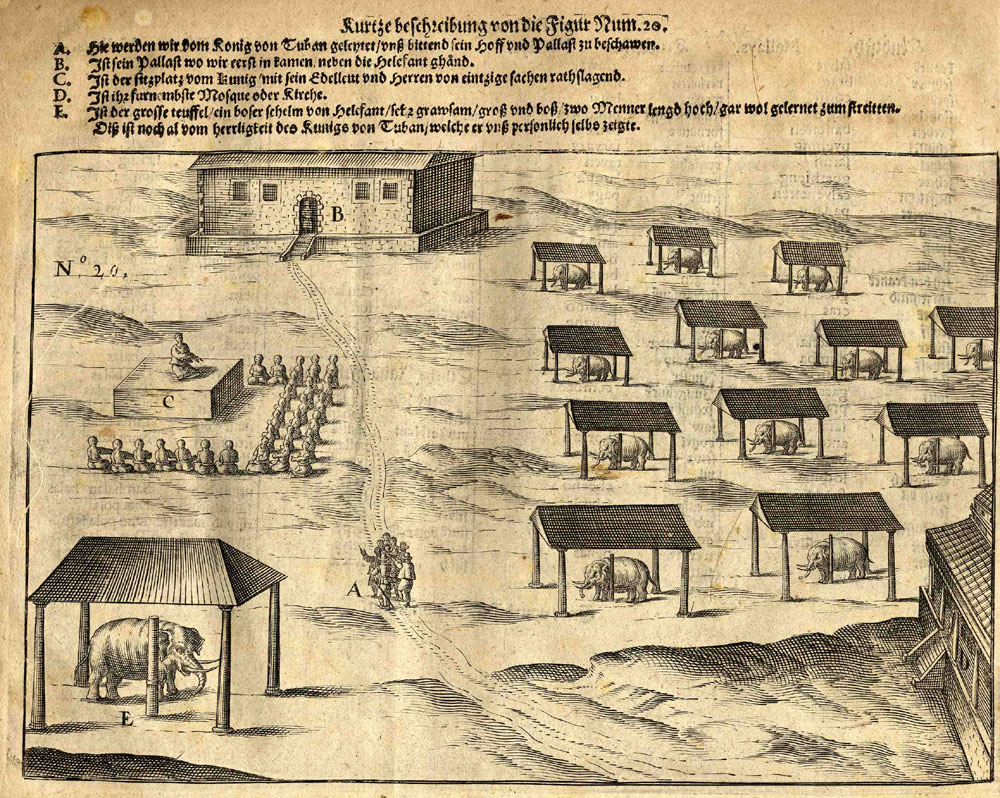 Kurtze beschreibung von die Figur Num. 20.
A. Hie werden wir vom Konig von Tuban geleytet/vnß bittend sein Hoff vnd Pallast zu beschawen.
B. Ist sein Pallast wo wir eerst in kamen, neben die Helefant ghånd.
C. Ist der sitzplatz vom Kunig/mit sein Edelleut vnd Herren von eintzige sachen rathslagend.
D. Ist ihr furnembste Mosque oder Kirche.
E. Ist der grosse teuffel/ein boser schelm von Helefant/sehr grawsam/groß vnd boß/zwo Menner lengd hoch/gar wol gelernet zum streitten.
Diß ist noch al vom herrligkeit des Kunigs von Tuban/welche er vnß personlich selbs zeigte.
B
N.º 20.
C
A
E